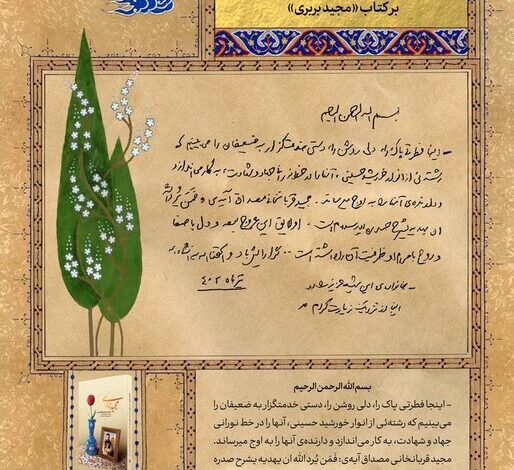 بر کتاب «مجید بربری»
بسم الله الرحمن الرحیم
- اینجا فطرتی پاک را، دلی روشن را، دستی خدمتگزار به ضعیفان را می‌بینیم که
رشته‌ئی از انوار خورشید حسینی، آنها را در خط نورانی جهاد و شهادت، به کار می‌اندازد
و دارنده‌ی آنها را به اوج میرساند. مجید قربانخانی مصداق آیه‌ی: و فمن یُرد الله
ان یهدیه یشرح صدره است. او لایق این عروج بود و دل باصفا
و روح او ظرفیت آن را داشته است..
تیرماه ۱۴۰۲
- خانواده‌ی این شهید عزیز
را از نزدیک زیارت کرده‌ام
بسم‌الله‌الرحمن‌الرحیم
- اینجا فطرتی پاک را، دلی روشن را، دستی خدمتگزار به ضعیفان را
می‌بینیم که رشته‌ئی از انوار خورشید حسینی، آنها را در خط نورانی
جهاد و شهادت، به کار می‌اندازد و دارنده‌ی آنها را به اوج میرساند.
مجید قربانخانی مصداق آیه‌ی: فَمَن یُرِدِ الله ان یهدیه یشرح صدره